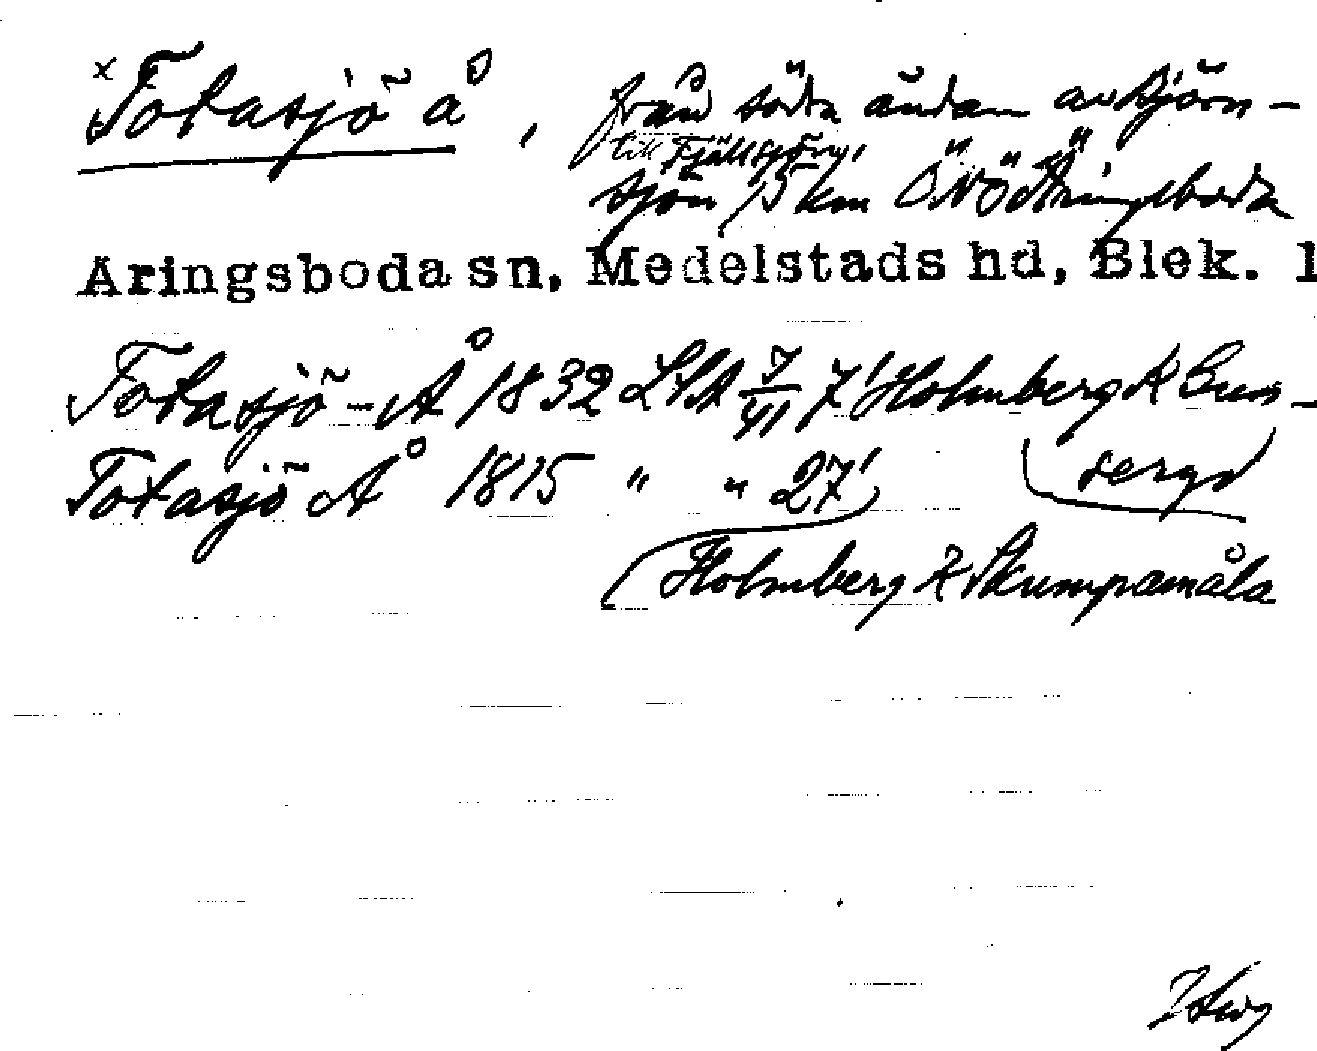 x Totasjö å, från södra ändan av Björn-
till Fjällsjön,
sjön, 5 km ÖNÖ Äringsboda
Äringsboda sn, Medelstads hd, Blek. l
Totasjö-Å 1832 LSA 7/VI 7' Holmberg R Guns-
Totasjö Å 1815 " " 27'
Holmberg R Skumpamåla